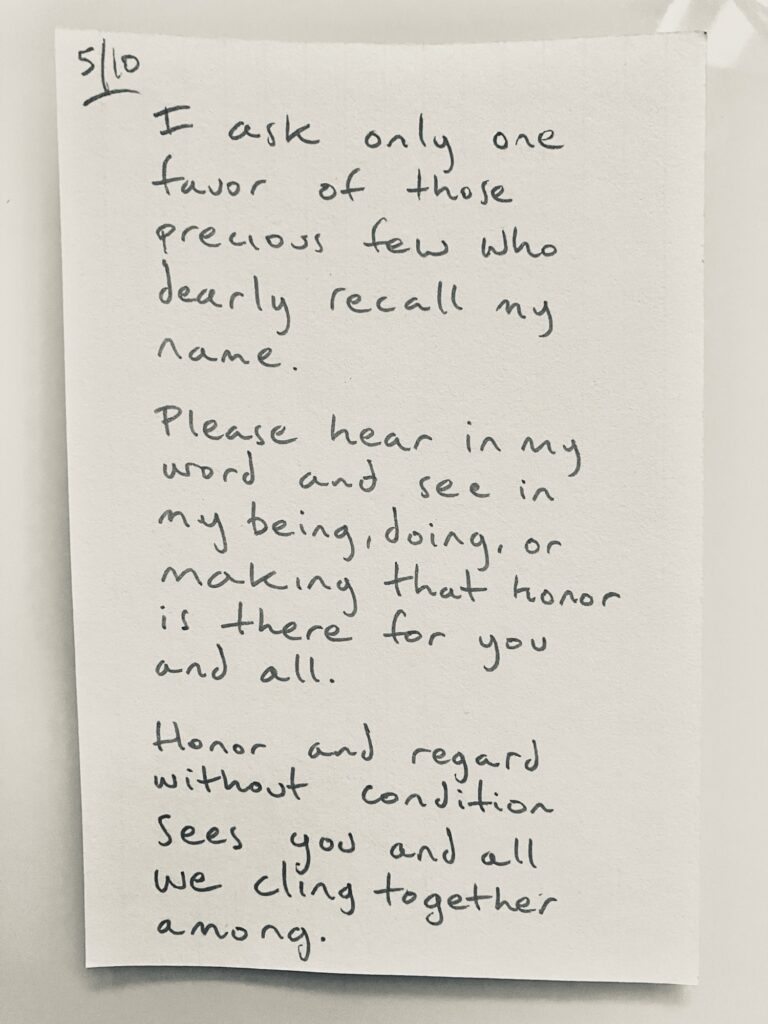 5/10
I ask only one
favor of those
precious few who
dearly recall my
name.
Please hear in my
word and see in
my being, doing, or
making that honor
is there for you
and all.
Honor and regard
without condition
sees you and all
we cling together
among.